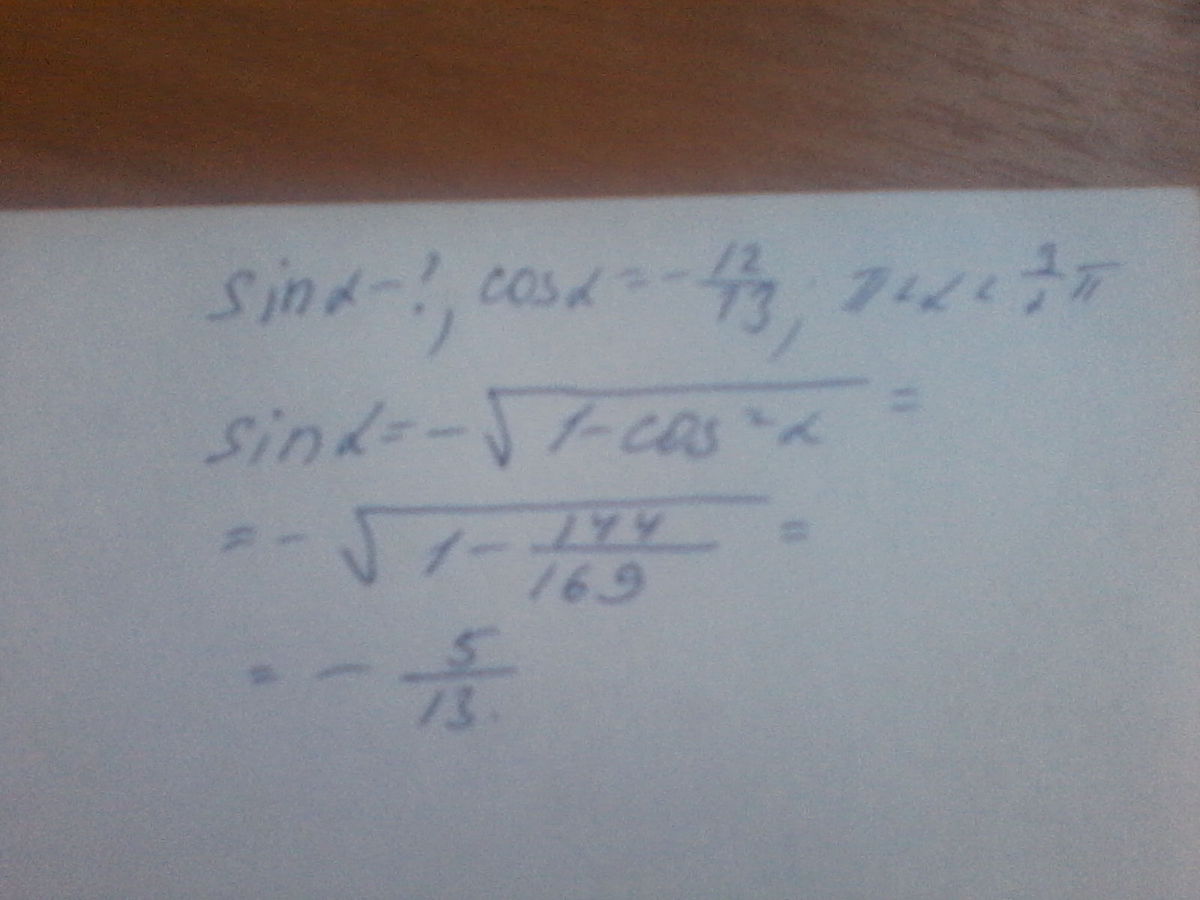 sin α - ?, cos α = - 12/13, π < α < 3/2 π
sin α = - √(1 - cos² α) =
= - √(1 - 144/169) =
= - 5/13.